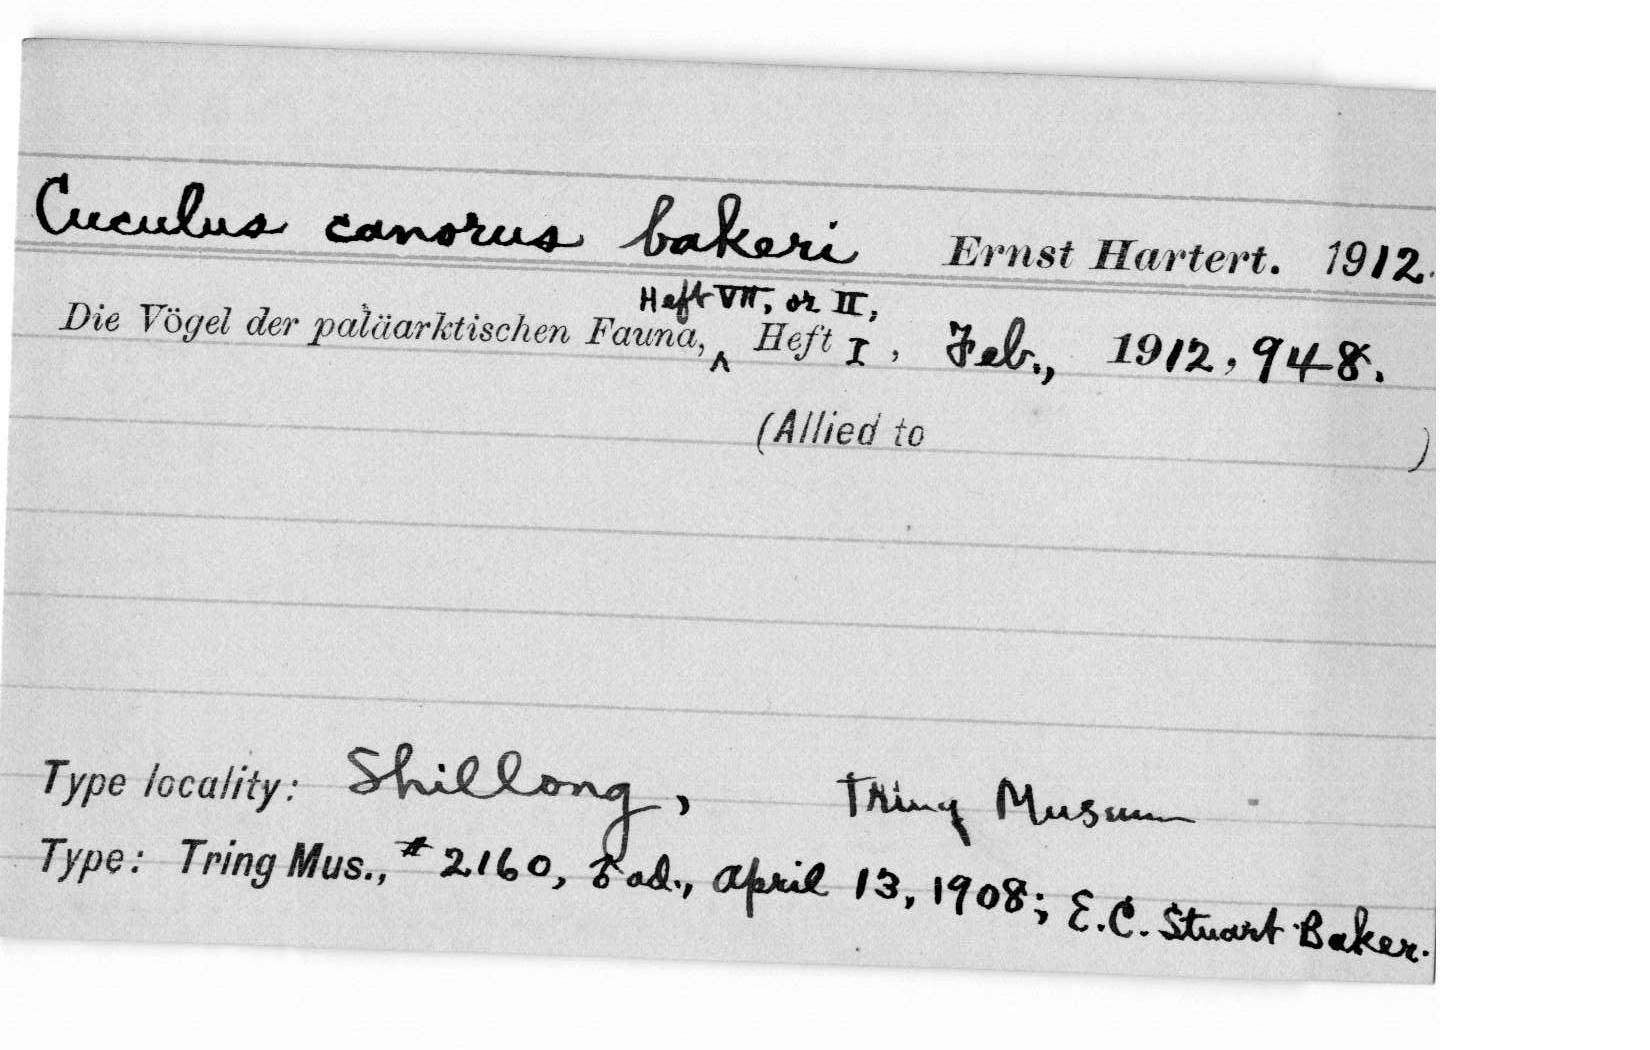 Cuculus canorus bakeri Ernst Hartert. 1912.
Heft VII, or II,
Die Vögel der paläarktischen Fauna, ^ Heft I, Feb., 1912, 948.
(Allied to )
Type locality: Shillong, Tring Museum
Type: Tring Mus., # 2160, ad., April 13, 1908; E.C. Stuart Baker.